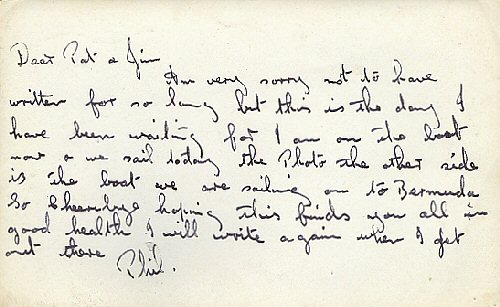 Dear Pat & Jim
Am very sorry not to have
written for so long but this is the day I
have been waiting for I am on the boat
now & we sail today the Photo the other side
is the boat we are sailing on to Bermuda
So Cheerybye hoping this finds you all in
good health I will write again when I get
out there
Phil.